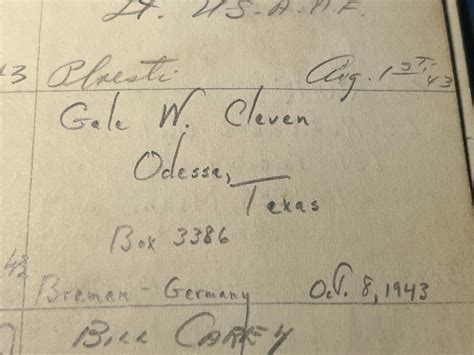 Lt. U.S.A.A.F.
43 Ploesti Aug. 1st, 43
Gale W. Cleven
Odessa,
Texas
Box 3386
Bremen - Germany Oct. 8, 1943
Bill Carey